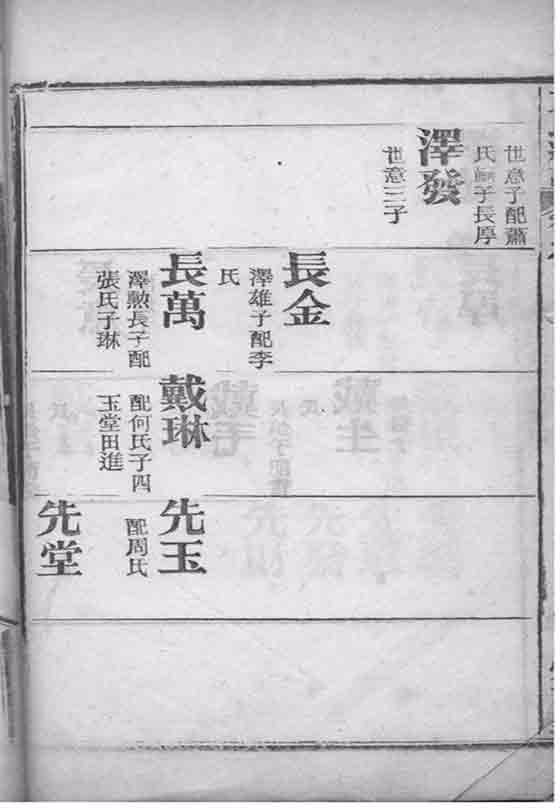 世意子配蕭
氏　子長厚
澤發
世意三子
長金
澤雄子配李
氏
長萬
澤勲長子配
張氏子琳
戴琳
配何氏子四
玉堂田進
先玉
配周氏
先堂